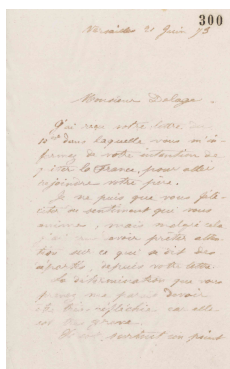 300
Versailles 21 Juin 73
Monsieur Delage.
J'ai reçu votre lettre du
10 dans laquelle vous m'in-
formez de votre intention de
quitter la France, pour aller
rejoindre votre père.
Je ne puis que vous féli-
citer du sentiment qui vous
anime, mais malgré cela
j'ai avoir prêter atten-
tion sur ce qui a dit des
depuis votre lettre
la détermination que vous
prenez me paraît devoir
être très réfléchie car elle
surtout un point